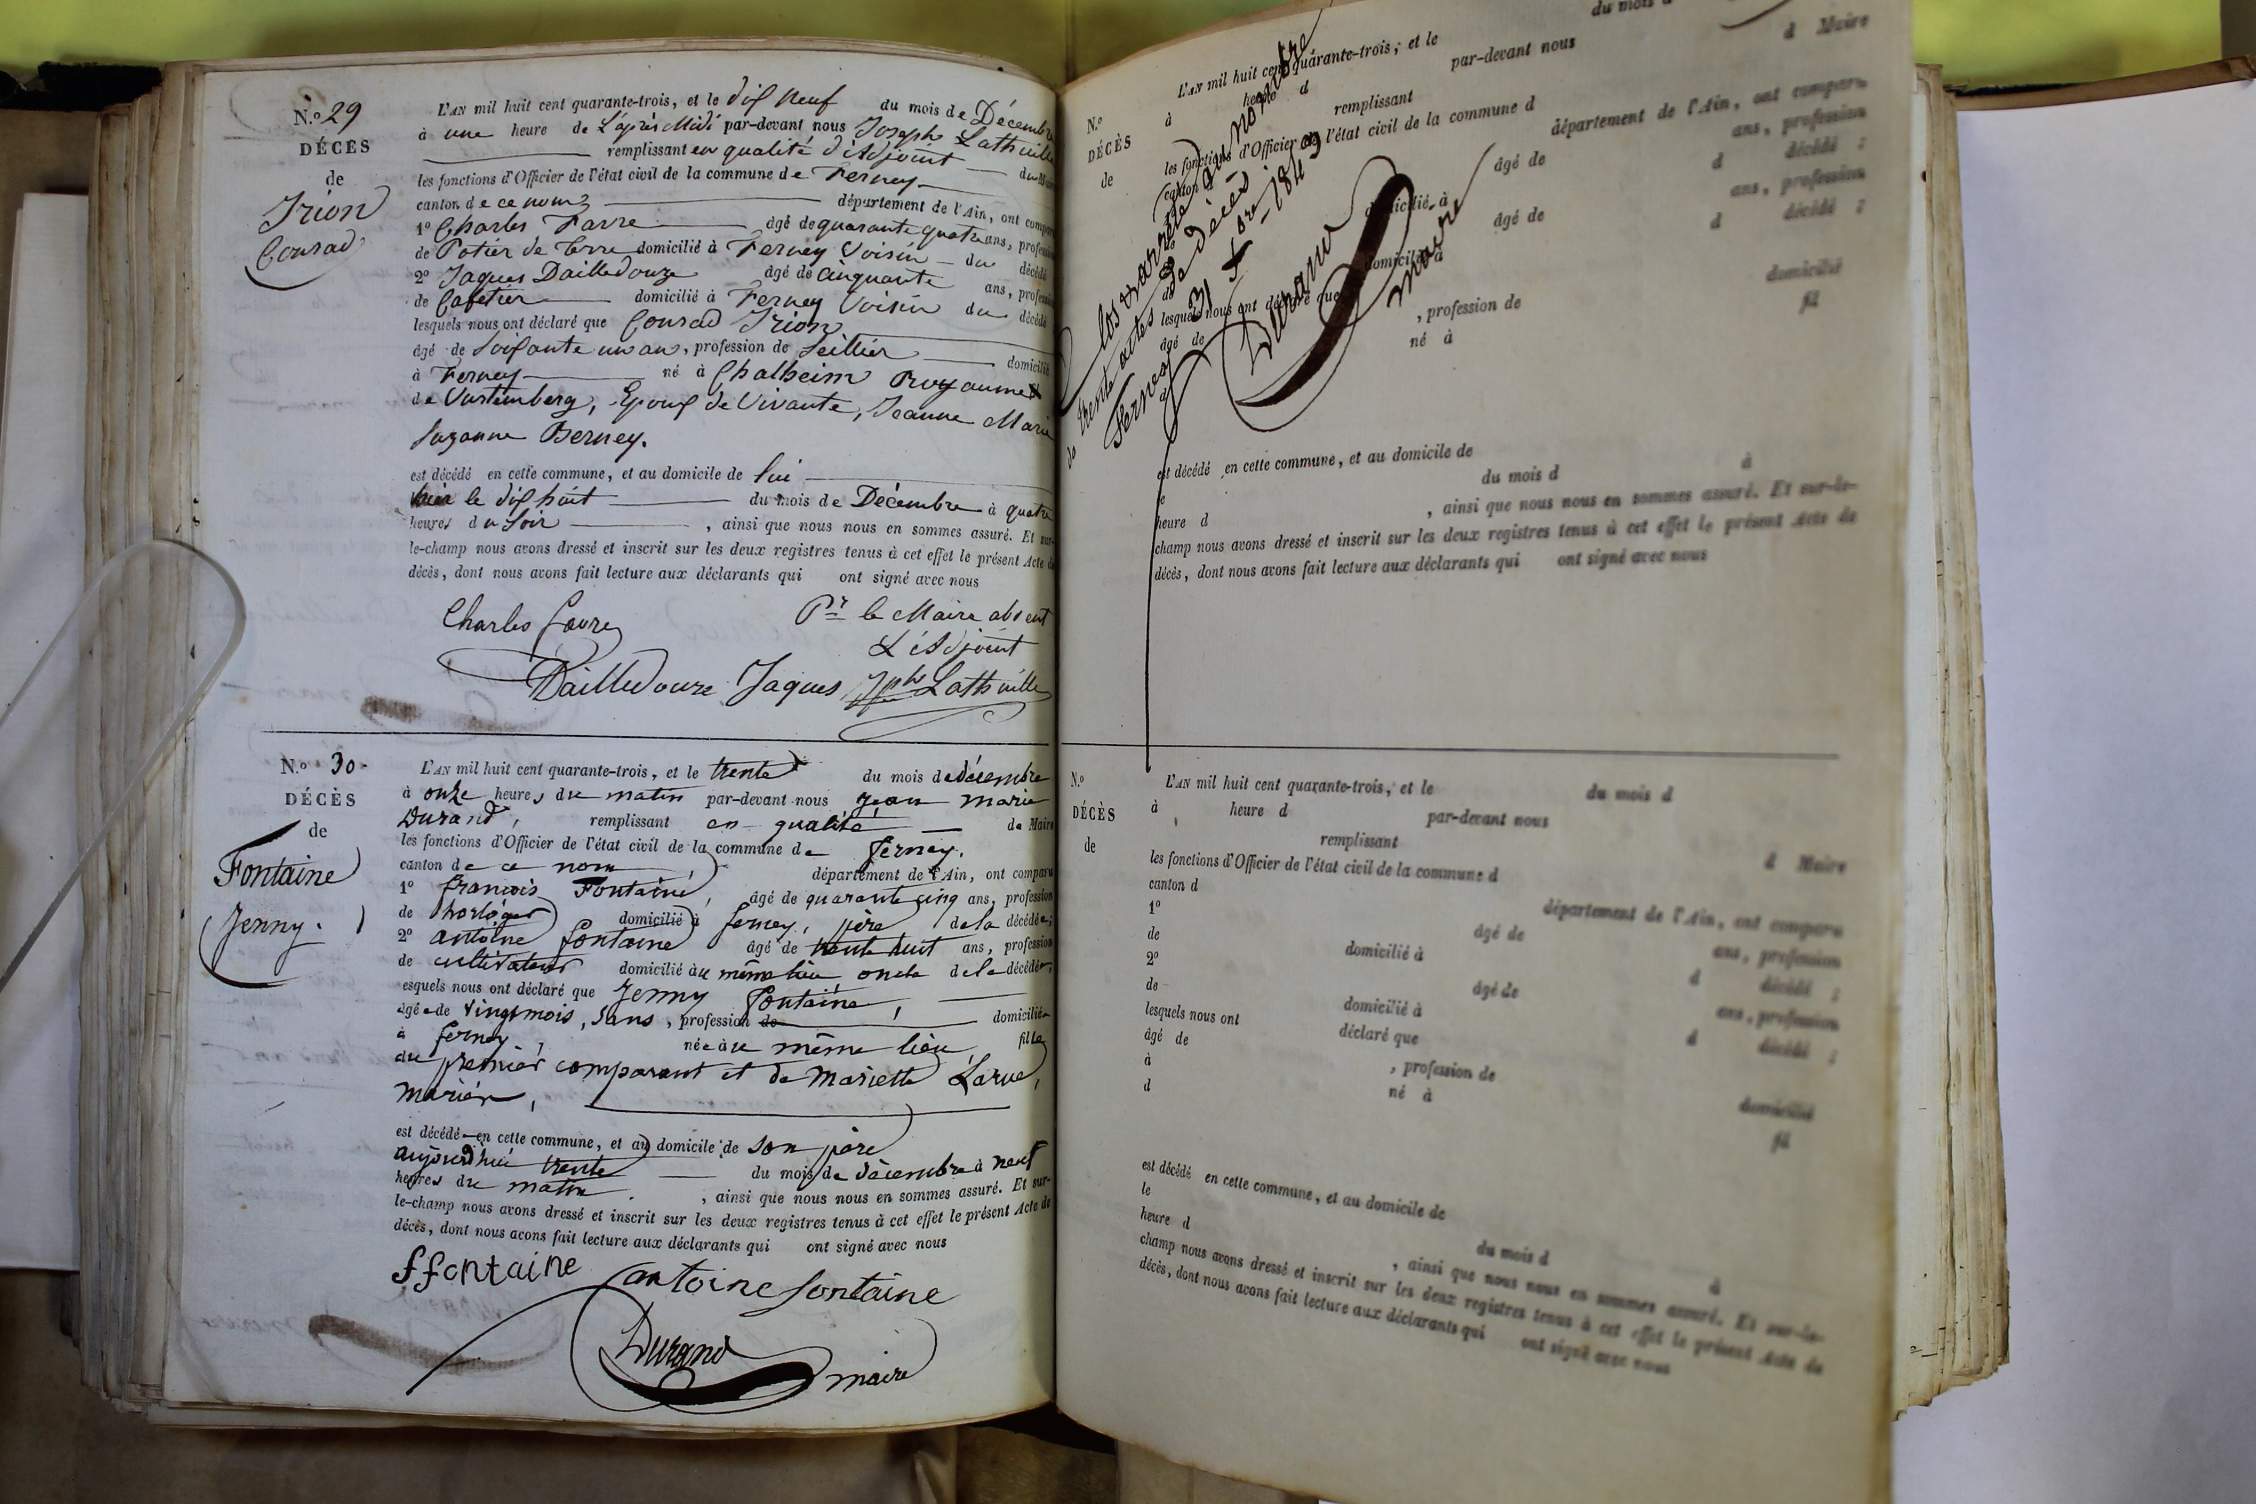 N.º 29
DÉCÈS
de
Irion
Conrad
L'AN mil huit cent quarante-trois, et le dix neuf du mois de Décembre
à une heure de L'après Midi par-devant nous Joseph Lathuille
remplissant en qualité d'Adjoint du Maire
les fonctions d'Officier de l'état civil de la commune de Ferney
canton de ce nom département de l'Ain, ont comparu
1º Charles Favre âgé de quarante quatre ans, profession
de Potier de terre domicilié à Ferney Voisin du décédé
2º Jaques Dailledouze âgé de cinquante ans, profession
de Cafetier domicilié à Ferney Voisin du décédé
lesquels nous ont déclaré que Conrad Irion
âgé de Soixante un an, profession de Seillier domicilié
à Ferney né à Chalheim Royaume
de Vurtemberg, Epoux de Vivante, Jeanne Marie
Suzanne Berney.
est décédé en cette commune, et au domicile de lui
hier le dix huit du mois de Décembre à quatre
heures du Soir , ainsi que nous nous en sommes assuré. Et sur-
le-champ nous avons dressé et inscrit sur les deux registres tenus à cet effet le présent Acte de
décès, dont nous avons fait lecture aux déclarants qui ont signé avec nous
Charles Favre
Pr le Maire absent
L'Adjoint
Dailledouze Jaques Jph Lathuille
N.º 30
DÉCÈS
de
Fontaine
Jenny.
L'AN mil huit cent quarante-trois, et le trente du mois de décembre
à onze heures du matin par-devant nous jean marie
Durand, remplissant en qualité de Maire
les fonctions d'Officier de l'état civil de la commune de ferney.
canton de ce nom département de l'Ain, ont comparu
1º françois Fontaine, âgé de quarante cinq ans, profession
de horloger domicilié à ferney, père de la décédée;
2º antoine fontaine âgé de trente huit ans, profession
de cultivateur domicilié au même lieu oncle de la décédée;
esquels nous ont déclaré que Jenny fontaine,
âgée de vingt mois, sans, profession de domiciliée
à ferney, née à au même lieu fille
du premier comparant et de Mariette Larue,
mariés,
est décédée en cette commune, et au domicile de son père
aujourd'hui trente du mois de décembre à neuf
heures du matin. , ainsi que nous nous en sommes assuré. Et sur-
le-champ nous avons dressé et inscrit sur les deux registres tenus à cet effet le présent Acte de
décès, dont nous avons fait lecture aux déclarants qui ont signé avec nous
ffontaine antoine fontaine
Durand maire
du mois d
L'AN mil huit cent quarante-trois, et le
N.º à heure d par-devant nous
DÉCÈS remplissant d Maire
de les fonctions d'Officier de l'état civil de la commune d
canton d département de l'Ain, ont comparu
âgé de ans, profession
domicilié à d décédé ;
âgé de ans, profession
domicilié à d décédé ;
lesquels nous ont déclaré que
âgé de , profession de domicilié
né à fil
Clos et arrêté au nombre
de trente actes de décès
Ferney 31 Xbre 1843
Durand
maire
est décédé en cette commune, et au domicile de
le du mois d à
heure d , ainsi que nous nous en sommes assuré. Et sur-le-
champ nous avons dressé et inscrit sur les deux registres tenus à cet effet le présent Acte de
décès, dont nous avons fait lecture aux déclarants qui ont signé avec nous
N.º
DÉCÈS
de
L'AN mil huit cent quarante-trois, et le du mois d
à heure d par-devant nous
remplissant d Maire
les fonctions d'Officier de l'état civil de la commune d
canton d département de l'Ain, ont comparu
1º âgé de ans, profession
de domicilié à d décédé ;
2º âgé de ans, profession
de domicilié à d décédé ;
lesquels nous ont déclaré que
âgé de , profession de domicilié
à né à fil
d
est décédé en cette commune, et au domicile de
le du mois d à
heure d , ainsi que nous nous en sommes assuré. Et sur-le-
champ nous avons dressé et inscrit sur les deux registres tenus à cet effet le présent Acte de
décès, dont nous avons fait lecture aux déclarants qui ont signé avec nous